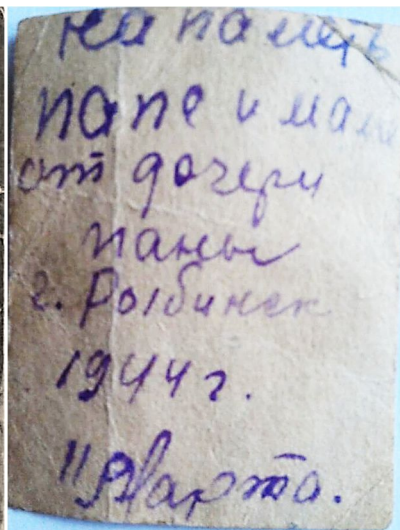 на память
папе и маме
от дочери
паны
г. Рыбинск
1944 г.
11 Марта.